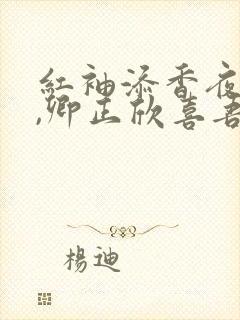 紅袖添香夜
,卿正欣喜吾
楊迪